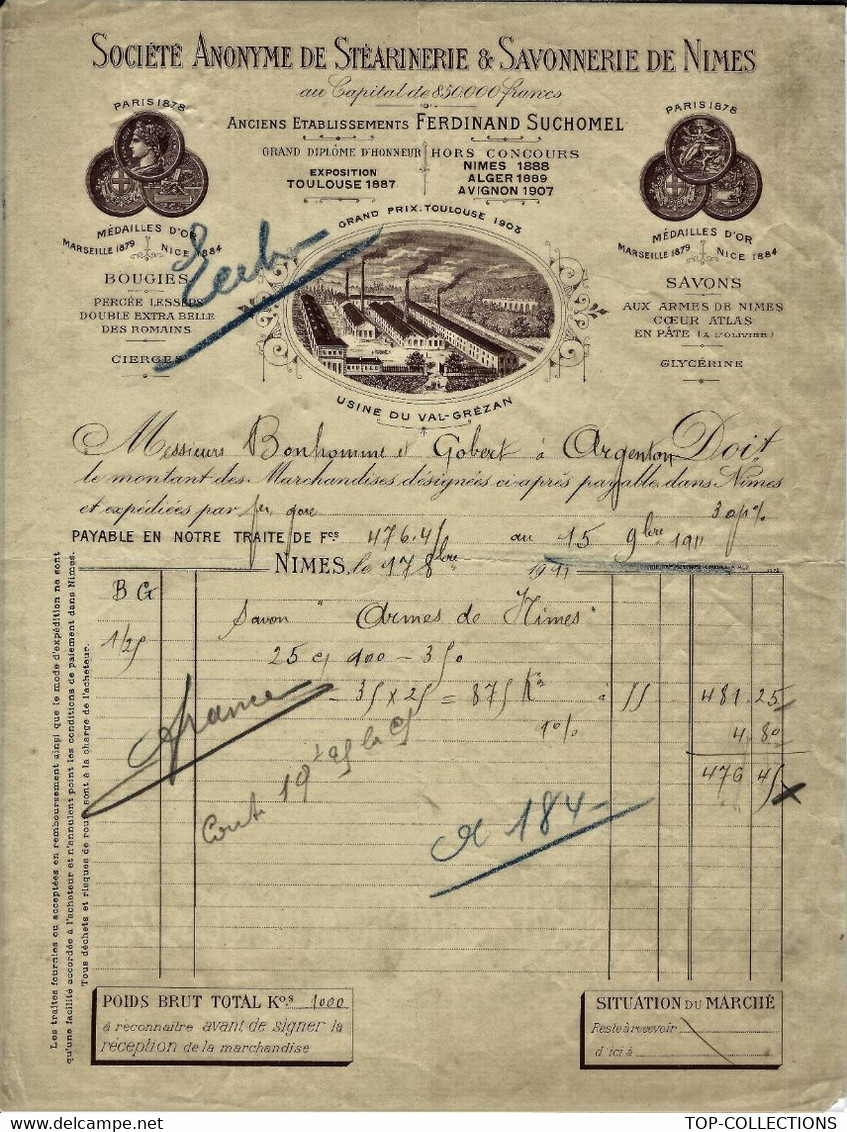 SOCIÉTÉ ANONYME DE STÉARINERIE & SAVONNERIE DE NIMES
au Capital de 850.000 francs
ANCIENS ETABLISSEMENTS FERDINAND SUCHOMEL
GRAND DIPLÔME D'HONNEUR
EXPOSITION
TOULOUSE 1887
HORS CONCOURS
NIMES 1888
ALGER 1889
AVIGNON 1907
PARIS 1878
MÉDAILLES D'OR
MARSEILLE 1879 NICE 1884
PARIS 1878
MÉDAILLES D'OR
MARSEILLE 1879 NICE 1884
GRAND PRIX. TOULOUSE 1903
BOUGIES
PERCÉE LESSEPS
DOUBLE EXTRA BELLE
DES ROMAINS
CIERGES
SAVONS
AUX ARMES DE NIMES
CŒUR ATLAS
EN PÂTE (A L'OLIVIER)
GLYCÉRINE
USINE DU VAL-GRÉZAN
Messieurs Bonhomme et Gobert à Argenton Doit
le montant des Marchandises désignées ci-après payable dans Nîmes
et expédiées par fer gare
PAYABLE EN NOTRE TRAITE DE Fcs 476.45 au 15 9bre 1911
NIMES, le 17 8bre 1911
B G
1/25
Savon "Armes de Nimes"
25 cs 400 - 350
35 x 25 = 875 Ks à 55 481.25
1% 4.80
476 45
France
R 184
POIDS BRUT TOTAL Kos 1000
à reconnaitre avant de signer la
réception de la marchandise
SITUATION DU MARCHÉ
Reste à recevoir
d'ici à
Les traites fournies ou acceptées en remboursement ainsi que le mode d'expédition ne sont
qu'une facilité accordée à l'acheteur et n'annulent point les conditions de paiement dans Nimes.
Tous déchets et risques de route sont à la charge de l'acheteur.
TOP-COLLECTIONS